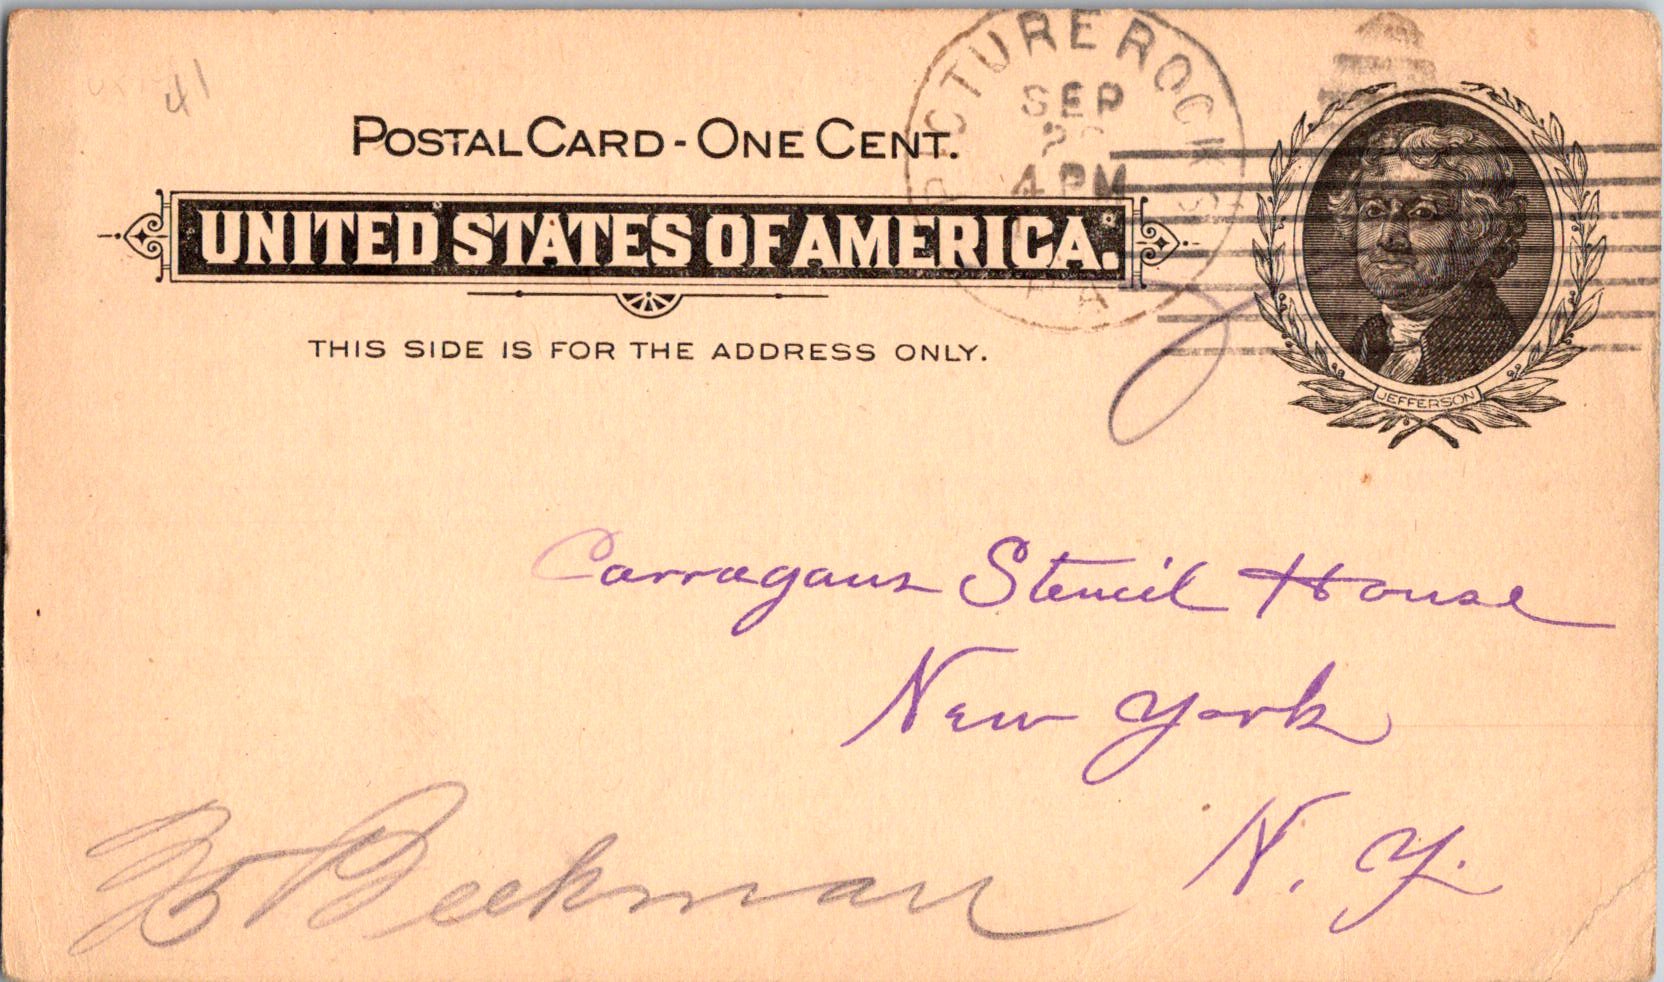 41
PICTURE ROCKS
SEP
4 PM
PA
POSTAL CARD - ONE CENT.
UNITED STATES OF AMERICA.
THIS SIDE IS FOR THE ADDRESS ONLY.
JEFFERSON
Carragans Stencil House
New York
N. Y.
Beekman